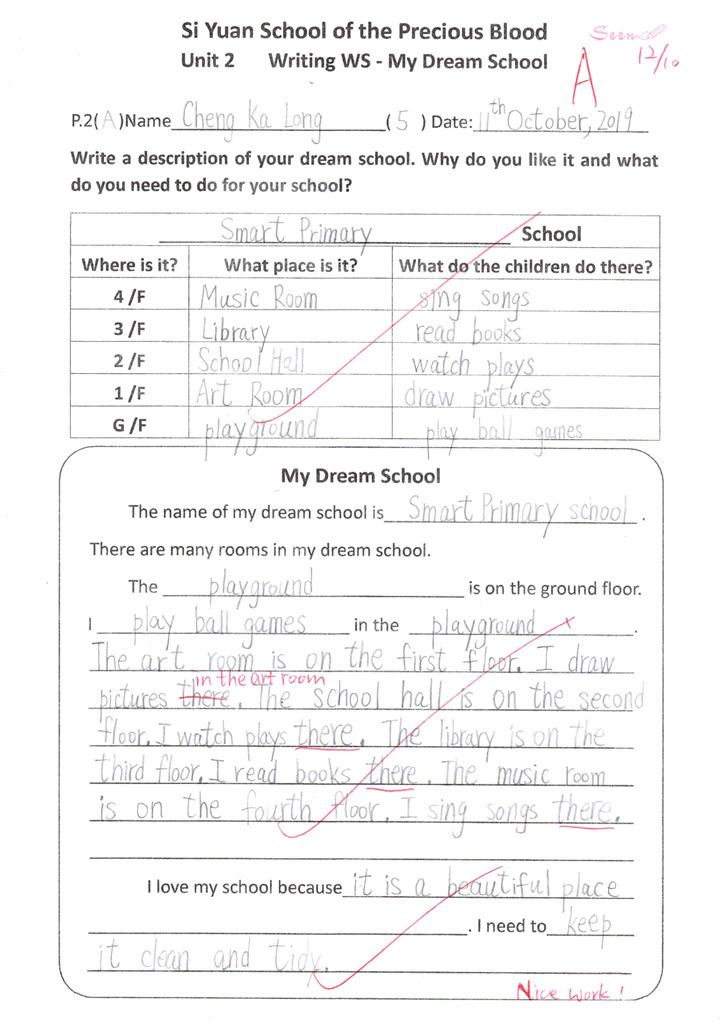 Si Yuan School of the Precious Blood
Unit 2 Writing WS - My Dream School
Seen
12/10
A
P.2( A )Name Cheng Ka Long ( 5 ) Date: 11th October, 2019
Write a description of your dream school. Why do you like it and what
do you need to do for your school?
Smart Primary School
Where is it? What place is it? What do the children do there?
4 /F Music Room sing songs
3 /F Library read books
2 /F School Hall watch plays
1 /F Art Room draw pictures
G /F playground play ball games
My Dream School
The name of my dream school is Smart Primary school .
There are many rooms in my dream school.
The playground is on the ground floor.
I play ball games in the playground .
The art room is on the first floor. I draw
in the art room
pictures there. The school hall is on the second
floor. I watch plays there. The library is on the
third floor. I read books there. The music room
is on the fourth floor. I sing songs there.
I love my school because it is a beautiful place
. I need to keep
it clean and tidy.
Nice work!